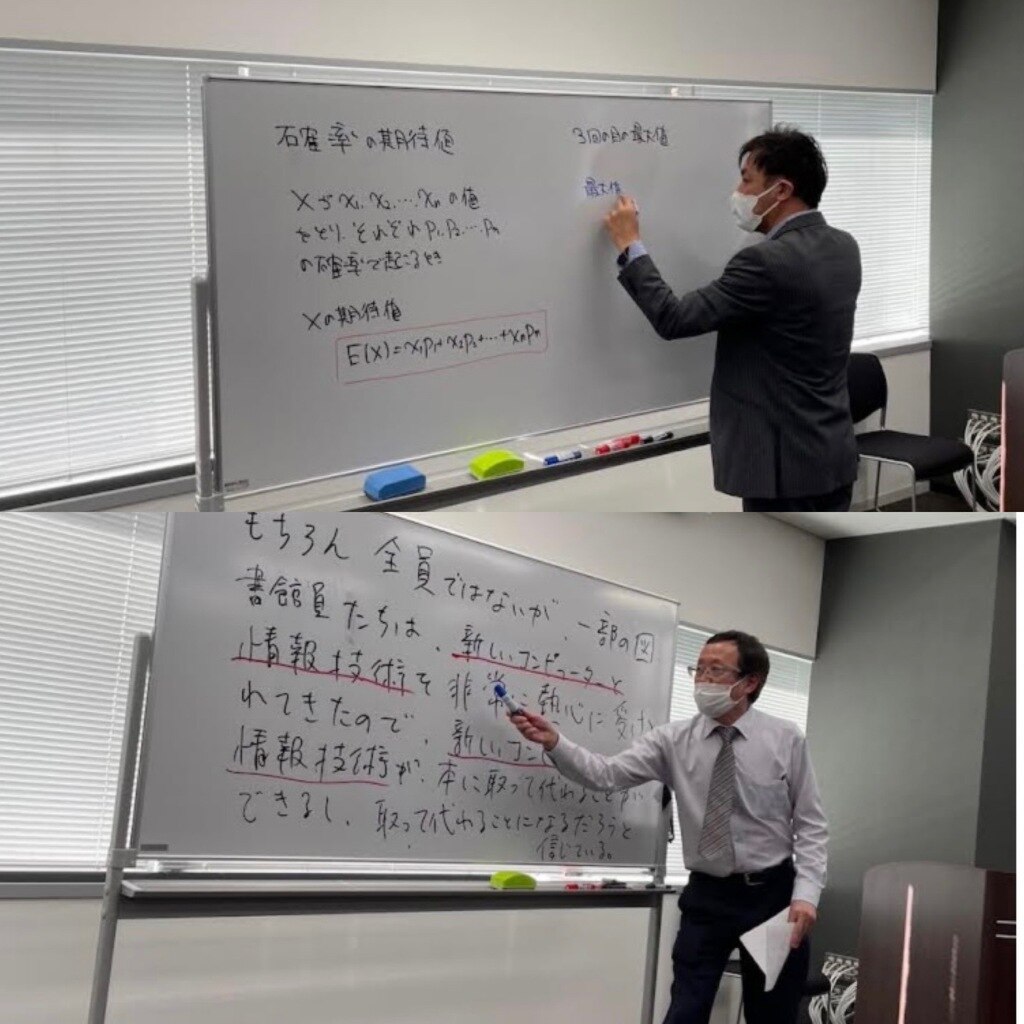 確率の期待値
Xが x₁, x₂, …, xₙ の値
をとり、それぞれ p₁, p₂, … pₙ
の確率で起こるとき
Xの期待値
E(X)=x₁p₁+x₂p₂+…+xₙpₙ
3回の目の最大値
最大値
もちろん 全員ではないが、一部の図
書館員たちは、新しいコンピューターと
情報技術を 非常に熱心に受け
れてきたので、新しいコン
情報技術が、本に取って代わることが
できるし、取って代わることになるだろうと
信じている。